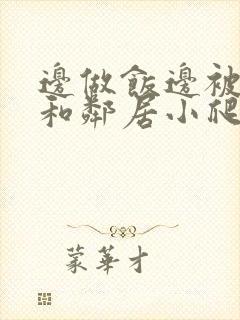 邊做飯邊被
和鄰居小爬
蒙華才